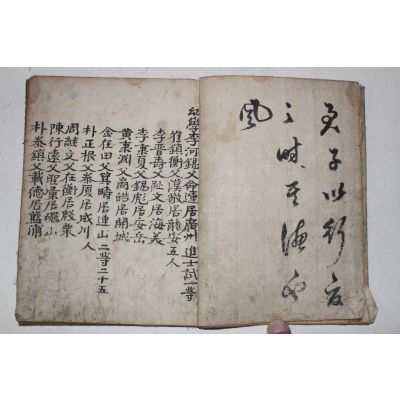 君子以
之時
風
幼學李河錫父命運居廣州進士試一等
崔鎭衡父漢敬居龍安五人
李晋壽父趾文居海美
李秉夏父錫彪居安岳
黃秉淵父商皓居開城
金在田父箕疇居連山二等二十五
朴正根父泰厦居成川人
周繼文父在衡居殷栗
陳行遠父聖量居礪山
朴泰鎭父載德居藍浦